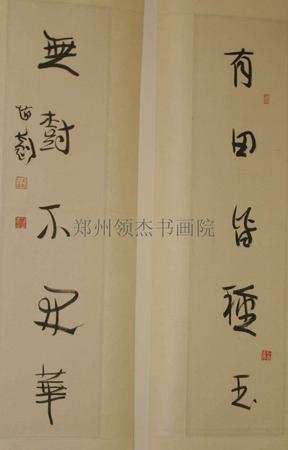 有田皆種玉
無樹不開華
郑州领杰书画院